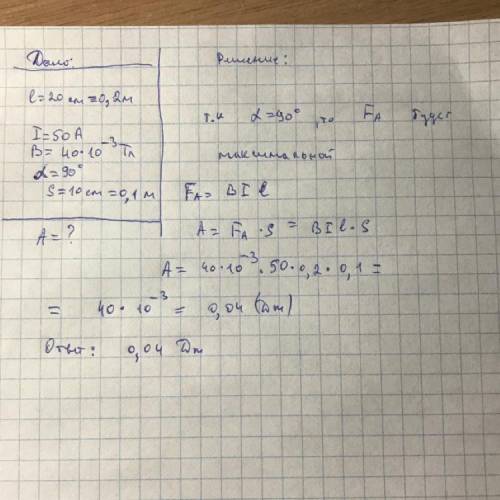 Дано:
l = 20 см = 0,2 м
I = 50 А
B = 40·10⁻³ Тл
α = 90°
S = 10 см = 0,1 м
A = ?
Решение:
т.к α = 90°, то F_A будет
максимальной
F_A = B I l
A = F_A · S = B I l · S
A = 40·10⁻³ · 50 · 0,2 · 0,1 =
= 40·10⁻³ = 0,04 (Дж)
Ответ: 0,04 Дж